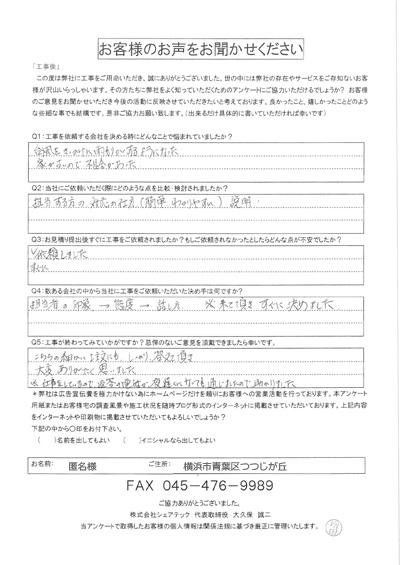 お客様のお声をお聞かせください
「工事後」
この度は弊社に工事をご用命いただき、誠にありがとうございました。世の中には弊社の存在やサービスをご存知ないお客
様が沢山いらっしゃいます。その方たちに弊社をよく知っていただくためのアンケートにご協力いただけるでしょうか? お客
様のご意見をお聞かせいただき今後の活動に反映させていただきたいと考えております。良かったこと、嬉しかったことどのよう
な些細な事でも結構です。是非ご協力お願い致します。(出来るだけ具体的に書いていただければ幸いです)
Q1:工事を依頼する会社を決める時にどんなことで悩まれていましたか?
台風を
家が古いので 不安があった
Q2:当社にご依頼いただく際にどのような点を比較・検討されましたか?
担当する方の 対応の仕方 (簡単 わかりやすい) 説明
Q3:お見積り提出後すぐに工事をご依頼されましたか?もしご依頼されなかったとしたらどんな点が不安でしたか?
依頼しました
すぐに
Q4:数ある会社の中から当社に工事をご依頼いただいた決め手は何ですか?
担当者の印象 → 態度 → 話し方 ※来て頂き すぐに決めました
Q5:工事が終わってみていかがですか?忌憚のないご意見を頂戴できましたら幸いです。
こちらの細かい
大変ありがたく思いました
※仕事をしているので
*弊社は広告宣伝費を極力かけない為にホームページだけを頼りにお客様への営業活動を行っております。本アンケート
用紙またはお客様宅の調査風景や施工状況を随時ブログ形式のインターネットに掲載させていただいております。上記内容
をインターネットや印刷物に掲載させていただいてもよろしいでしょうか?
下記の中から〇印をお付け下さい。
( )名前を出してもよい ( )イニシャルなら出してもよい
お名前: 匿名様 ご住所: 横浜市青葉区つつじが丘
FAX 045-476-9989
ご協力ありがとうございました。
株式会社シェアテック 代表取締役 大久保 誠二
当アンケートで取得したお客様の個人情報は関係法規に基づき厳正に管理いたします。